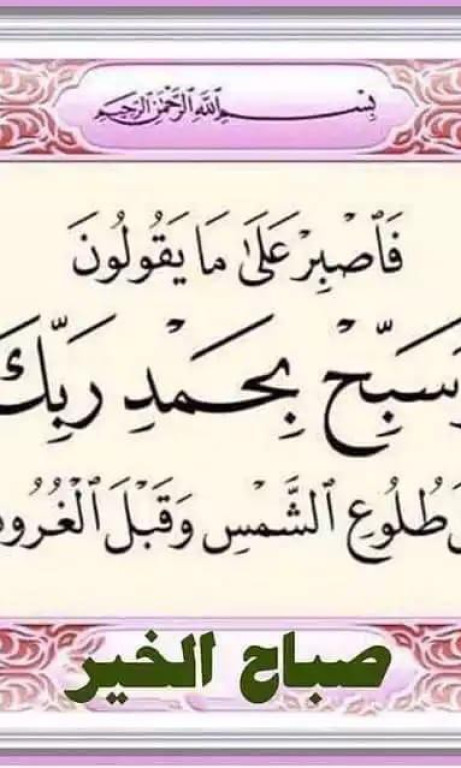 بِسْمِ اللَّهِ الرَّحْمَٰنِ الرَّحِيمِ
فَٱصْبِرْ عَلَىٰ مَا يَقُولُونَ
وَسَبِّحْ بِحَمْدِ رَبِّكَ
طُلُوعِ ٱلشَّمْسِ وَقَبْلَ ٱلْغُرُوبِ
صباح الخير